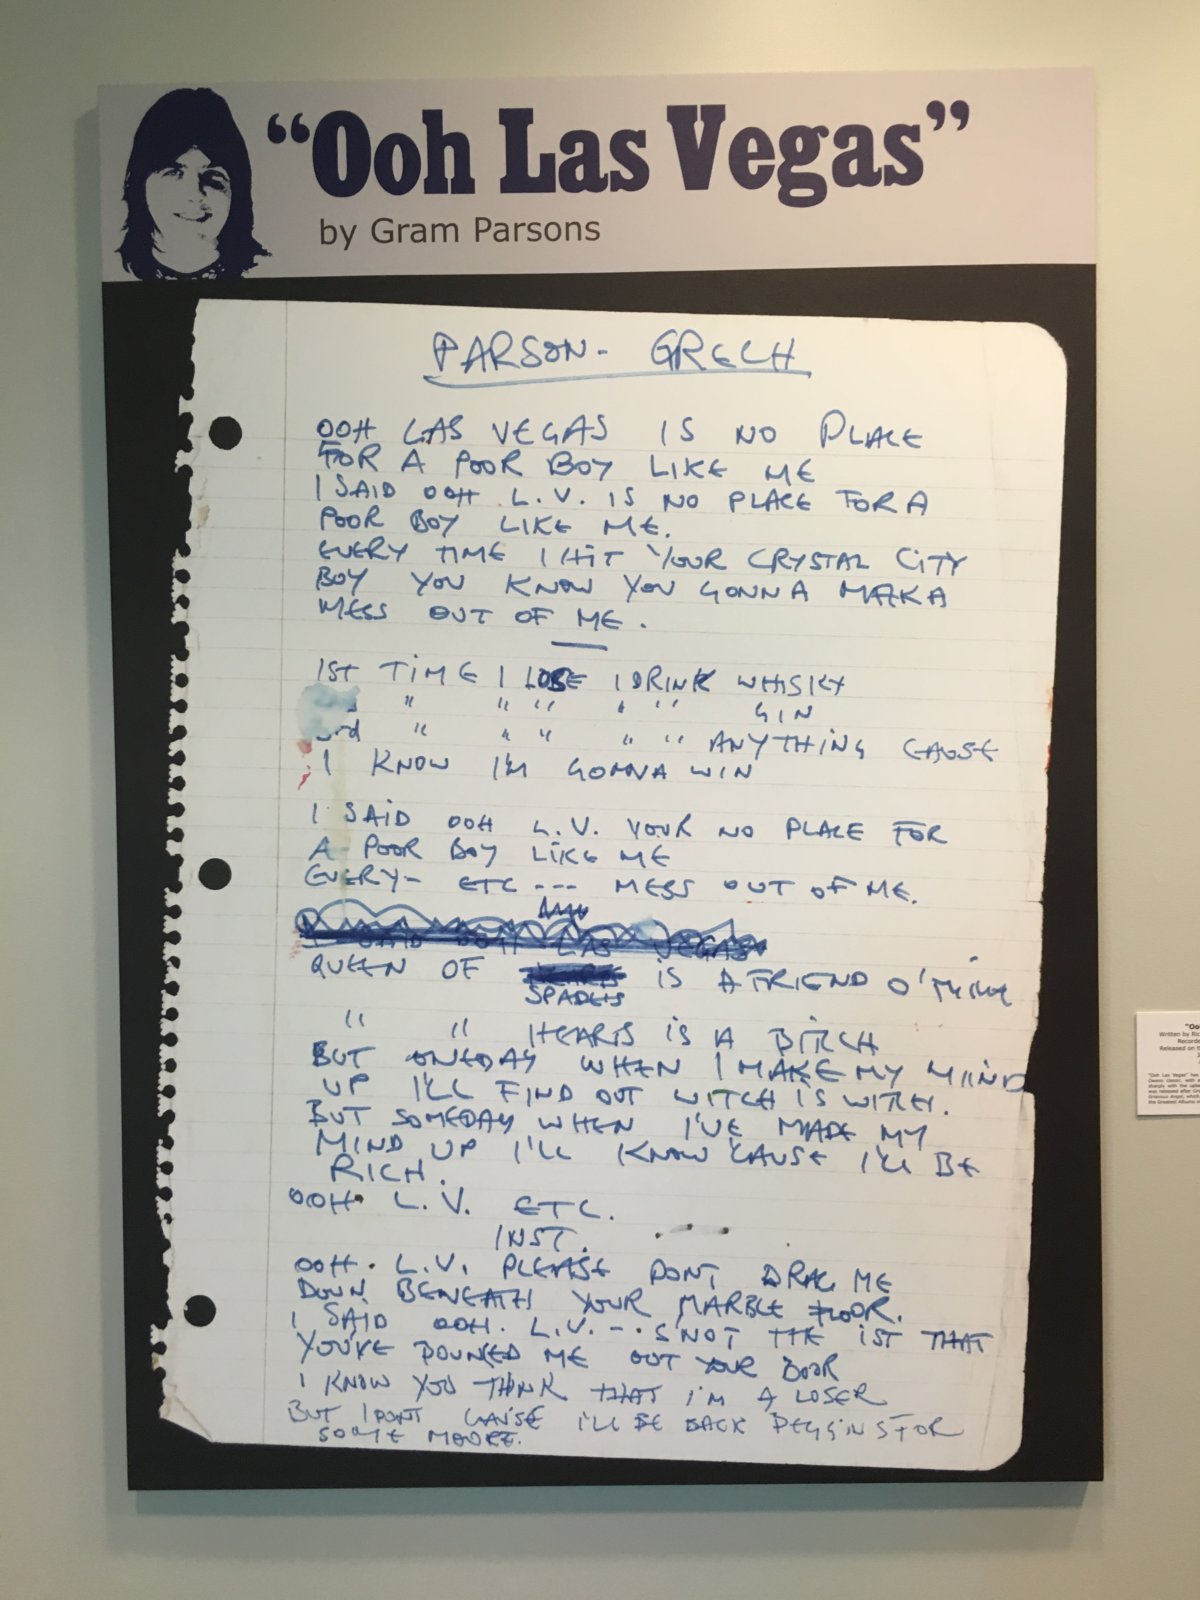 “Ooh Las Vegas”
by Gram Parsons
PARSON - GRECH
OOH LAS VEGAS IS NO PLACE
FOR A POOR BOY LIKE ME
I SAID OOH L.V. IS NO PLACE FOR A
POOR BOY LIKE ME.
EVERY TIME I HIT YOUR CRYSTAL CITY
BOY YOU KNOW YOU GONNA MAKA
MESS OUT OF ME.
1ST TIME I LOSE I DRINK WHISKY
" " " " " GIN
3rd " " " " " ANYTHING CAUSE
I KNOW I'M GONNA WIN
I SAID OOH L.V. YOUR NO PLACE FOR
A POOR BOY LIKE ME
EVERY- ETC --- MESS OUT OF ME.
I SAID OOH LAS VEGAS
QUEEN OF HEARTS IS A FRIEND O'MINE
SPADES
" " HEARTS IS A BITCH
BUT ONEDAY WHEN I MAKE MY MIIND
UP I'LL FIND OUT WITCH IS WITCH.
BUT SOMEDAY WHEN I'VE MADE MY
MIND UP I'LL KNOW 'CAUSE I'LL BE
RICH.
OOH. L.V. ETC.
INST.
OOH. L.V. PLEASE DONT DRAG ME
DOWN BENEATH YOUR MARBLE FLOOR.
I SAID OOH. L.V. -.. SNOT THE 1ST THAT
YOU'VE BOUNCED ME OUT YOUR DOOR
I KNOW YOU THINK THAT I'M A LOSER
BUT I DONT CAUSE I'LL BE BACK BEGGINS FOR
SOME MOORE.
"Oo
Written by Ric
Recorde
Released on t
"Ooh Las Vegas" has
Owens classic, with
sharply with the
was released after Gr
Grievous Angel, which
the Greatest Albums